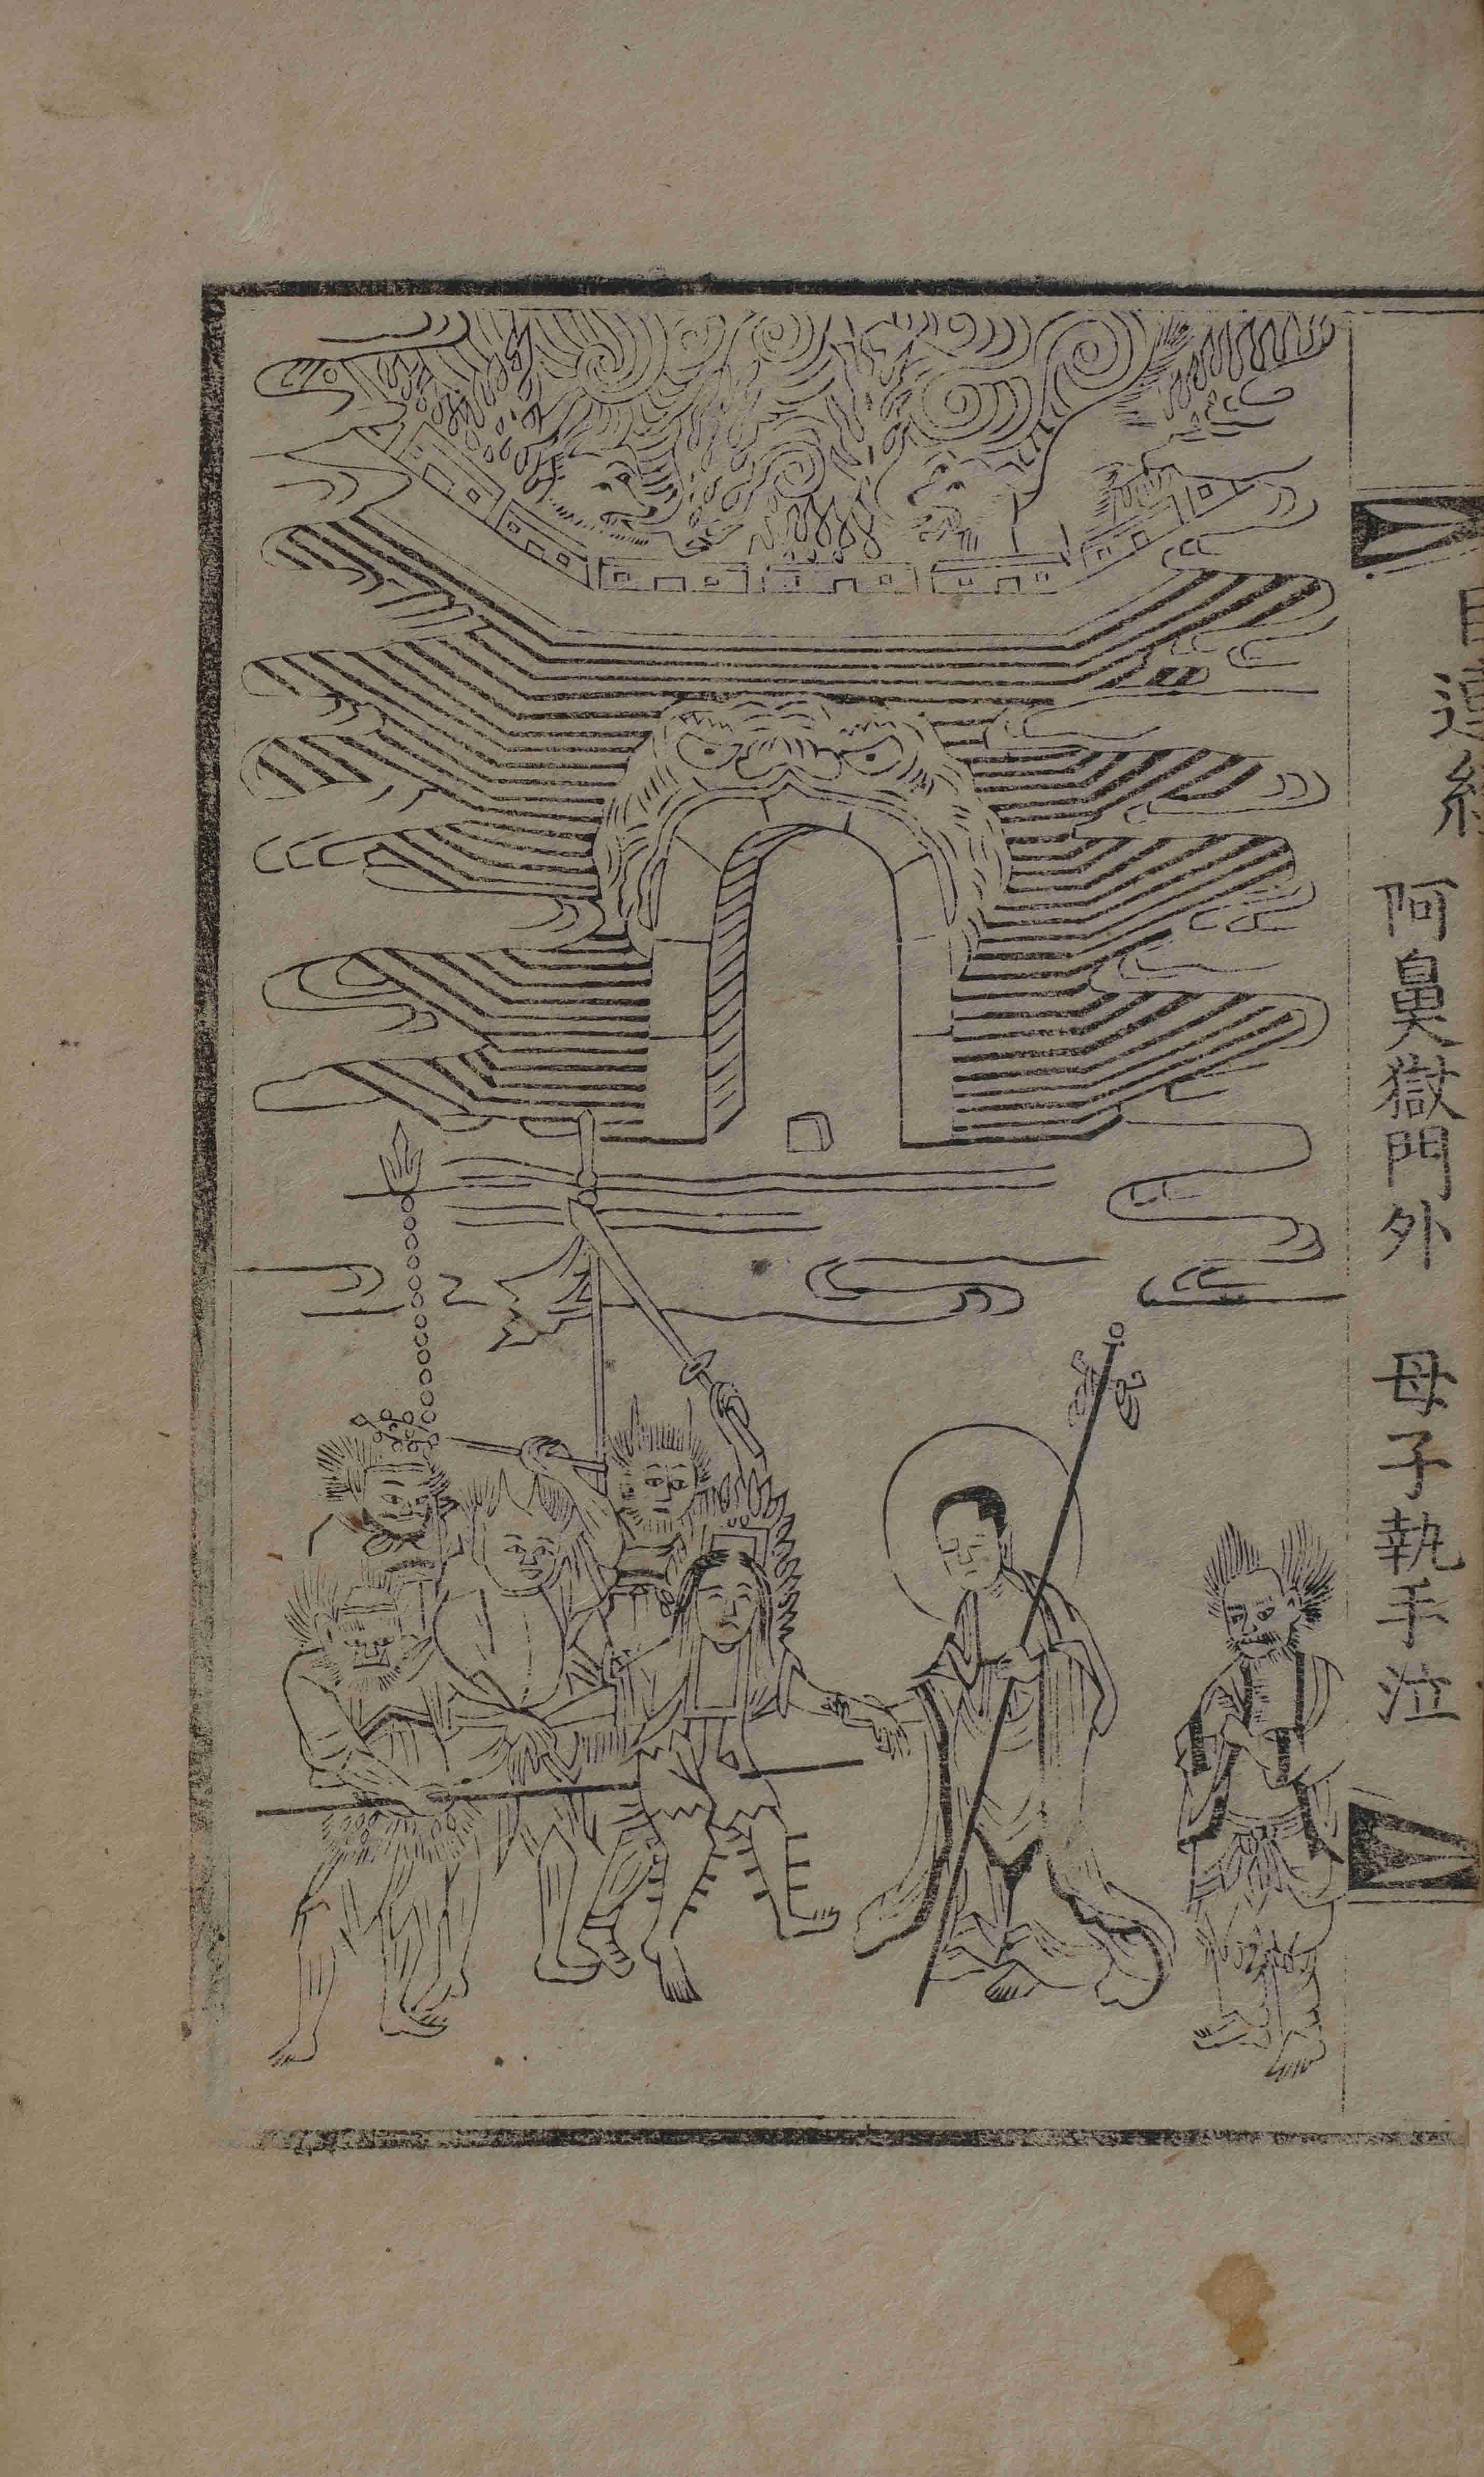 目連經
阿鼻獄門外 母子執手泣